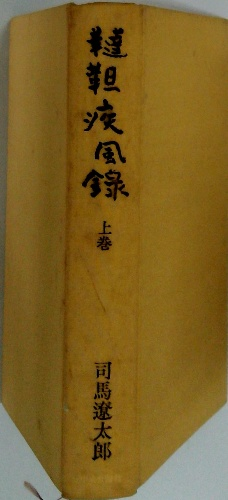 韃靼疾風録
上巻
司馬遼太郎